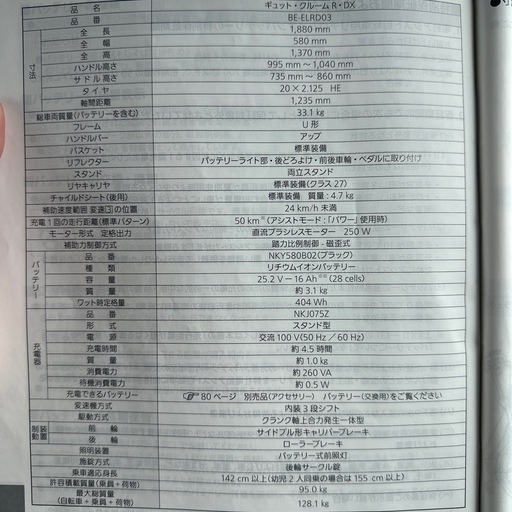 品 名 ギュット・クルームR・DX
品 番 BE-ELRD03
寸法
全 長 1,880 mm
全 幅 580 mm
全 高 1,370 mm
ハンドル高さ 995 mm～1,040 mm
サドル高さ 735 mm～ 860 mm
タイヤ 20×2.125 HE
軸間距離 1,235 mm
総車両質量(バッテリーを含む) 33.1 kg
フレーム U形
ハンドルバー アップ
バスケット 標準装備
リフレクター バッテリーライト部・後どろよけ・前後車輪・ペダルに取り付け
スタンド 両立スタンド
リヤキャリヤ 標準装備(クラス27)
チャイルドシート(後用) 標準装備 質量：4.7 kg
補助速度範囲 変速[3]の位置 24 km/h 未満
充電1回の走行距離(標準パターン) 50 km※(アシストモード：「パワー」使用時)
モーター形式 定格出力 直流ブラシレスモーター 250 W
補助力制御方式 踏力比例制御 - 磁歪式
バッテリー
品 番 NKY580B02(ブラック)
種 類 リチウムイオンバッテリー
容 量 25.2 V－16 Ah※※(28 cells)
質 量 約 3.1 kg
ワット時定格量 404 Wh
充電器
品 番 NKJ075Z
形 式 スタンド型
電 源 交流 100 V(50 Hz / 60 Hz)
充電時間 約 4.5 時間
質 量 約 1.0 kg
消費電力 約 260 VA
待機消費電力 約 0.5 W
充電できるバッテリー ☞ 80 ページ 別売品(アクセサリー) バッテリー(交換用)をご覧ください
変速機方式 内装3段シフト
駆動方式 クランク軸上合力発生一体型
制動装置
前 輪 サイドプル形キャリパーブレーキ
後 輪 ローラーブレーキ
照明装置 バッテリー式前照灯
施錠方式 後輪サークル錠
乗車適応身長 142 cm 以上(幼児2人同乗の場合は 155 cm 以上)
許容積載質量(乗員+荷物) 95.0 kg
最大総質量
(自転車+乗員+荷物) 128.1 kg